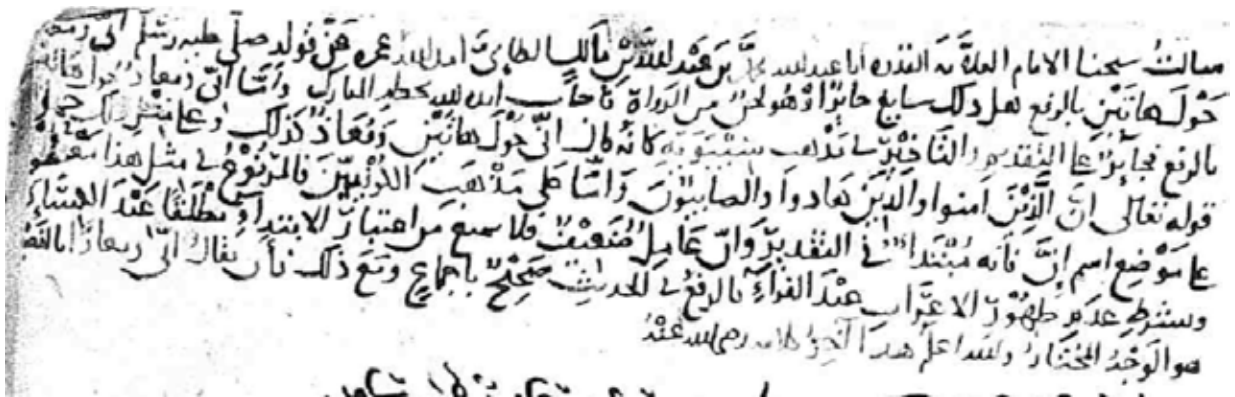 سالت شيخنا الامام العلامة القدوة ابا عبد الله محمد بن عبد الله بن مالك الطائي امد الله عمره عن قوله صلى عليه وسلم اني ومعاذ
حول هاتين بالرفع هل ذلك سايغ جائز او هو لحن من الرواة فاجاب ايده الله بخطه المبارك واما اني ومعاذ حول هاتين
بالرفع فجائز على التقديم والتاخير في مذهب سيبويه كانه قال اني حول هاتين ومعاذ كذلك وعلى مثل ذلك حمل
قوله تعالى ان الذين امنوا والذين هادوا والصابيون واما على مذهب الكوفيين فالمرفوع في مثل هذا معطوف
على موضع اسم ان فانه مبتدا في التقدير وان عامل ضعيف فلا يمنع من اعتبار الابتداء مطلقا عند الكسائي
وبشرط عدم ظهور الاعراب عند الفراء فالرفع في الحديث صحيح باجماع ومع ذلك فأن يقال اني ومعاذا بالنصب
هو الوجه المختار والله اعلم هذا آخر كلامه رضي الله عنه